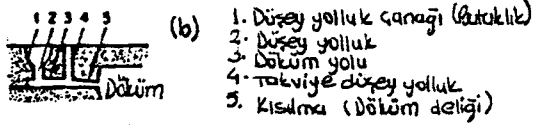 1 2 3 4 5
Döküm
(b)
1. Düşey yolluk çanağı (kutuklik)
2. Düşey yolluk
3. Döküm yolu
4- Takviye düşey yolluk
5. Kısılma (Döküm deliği)